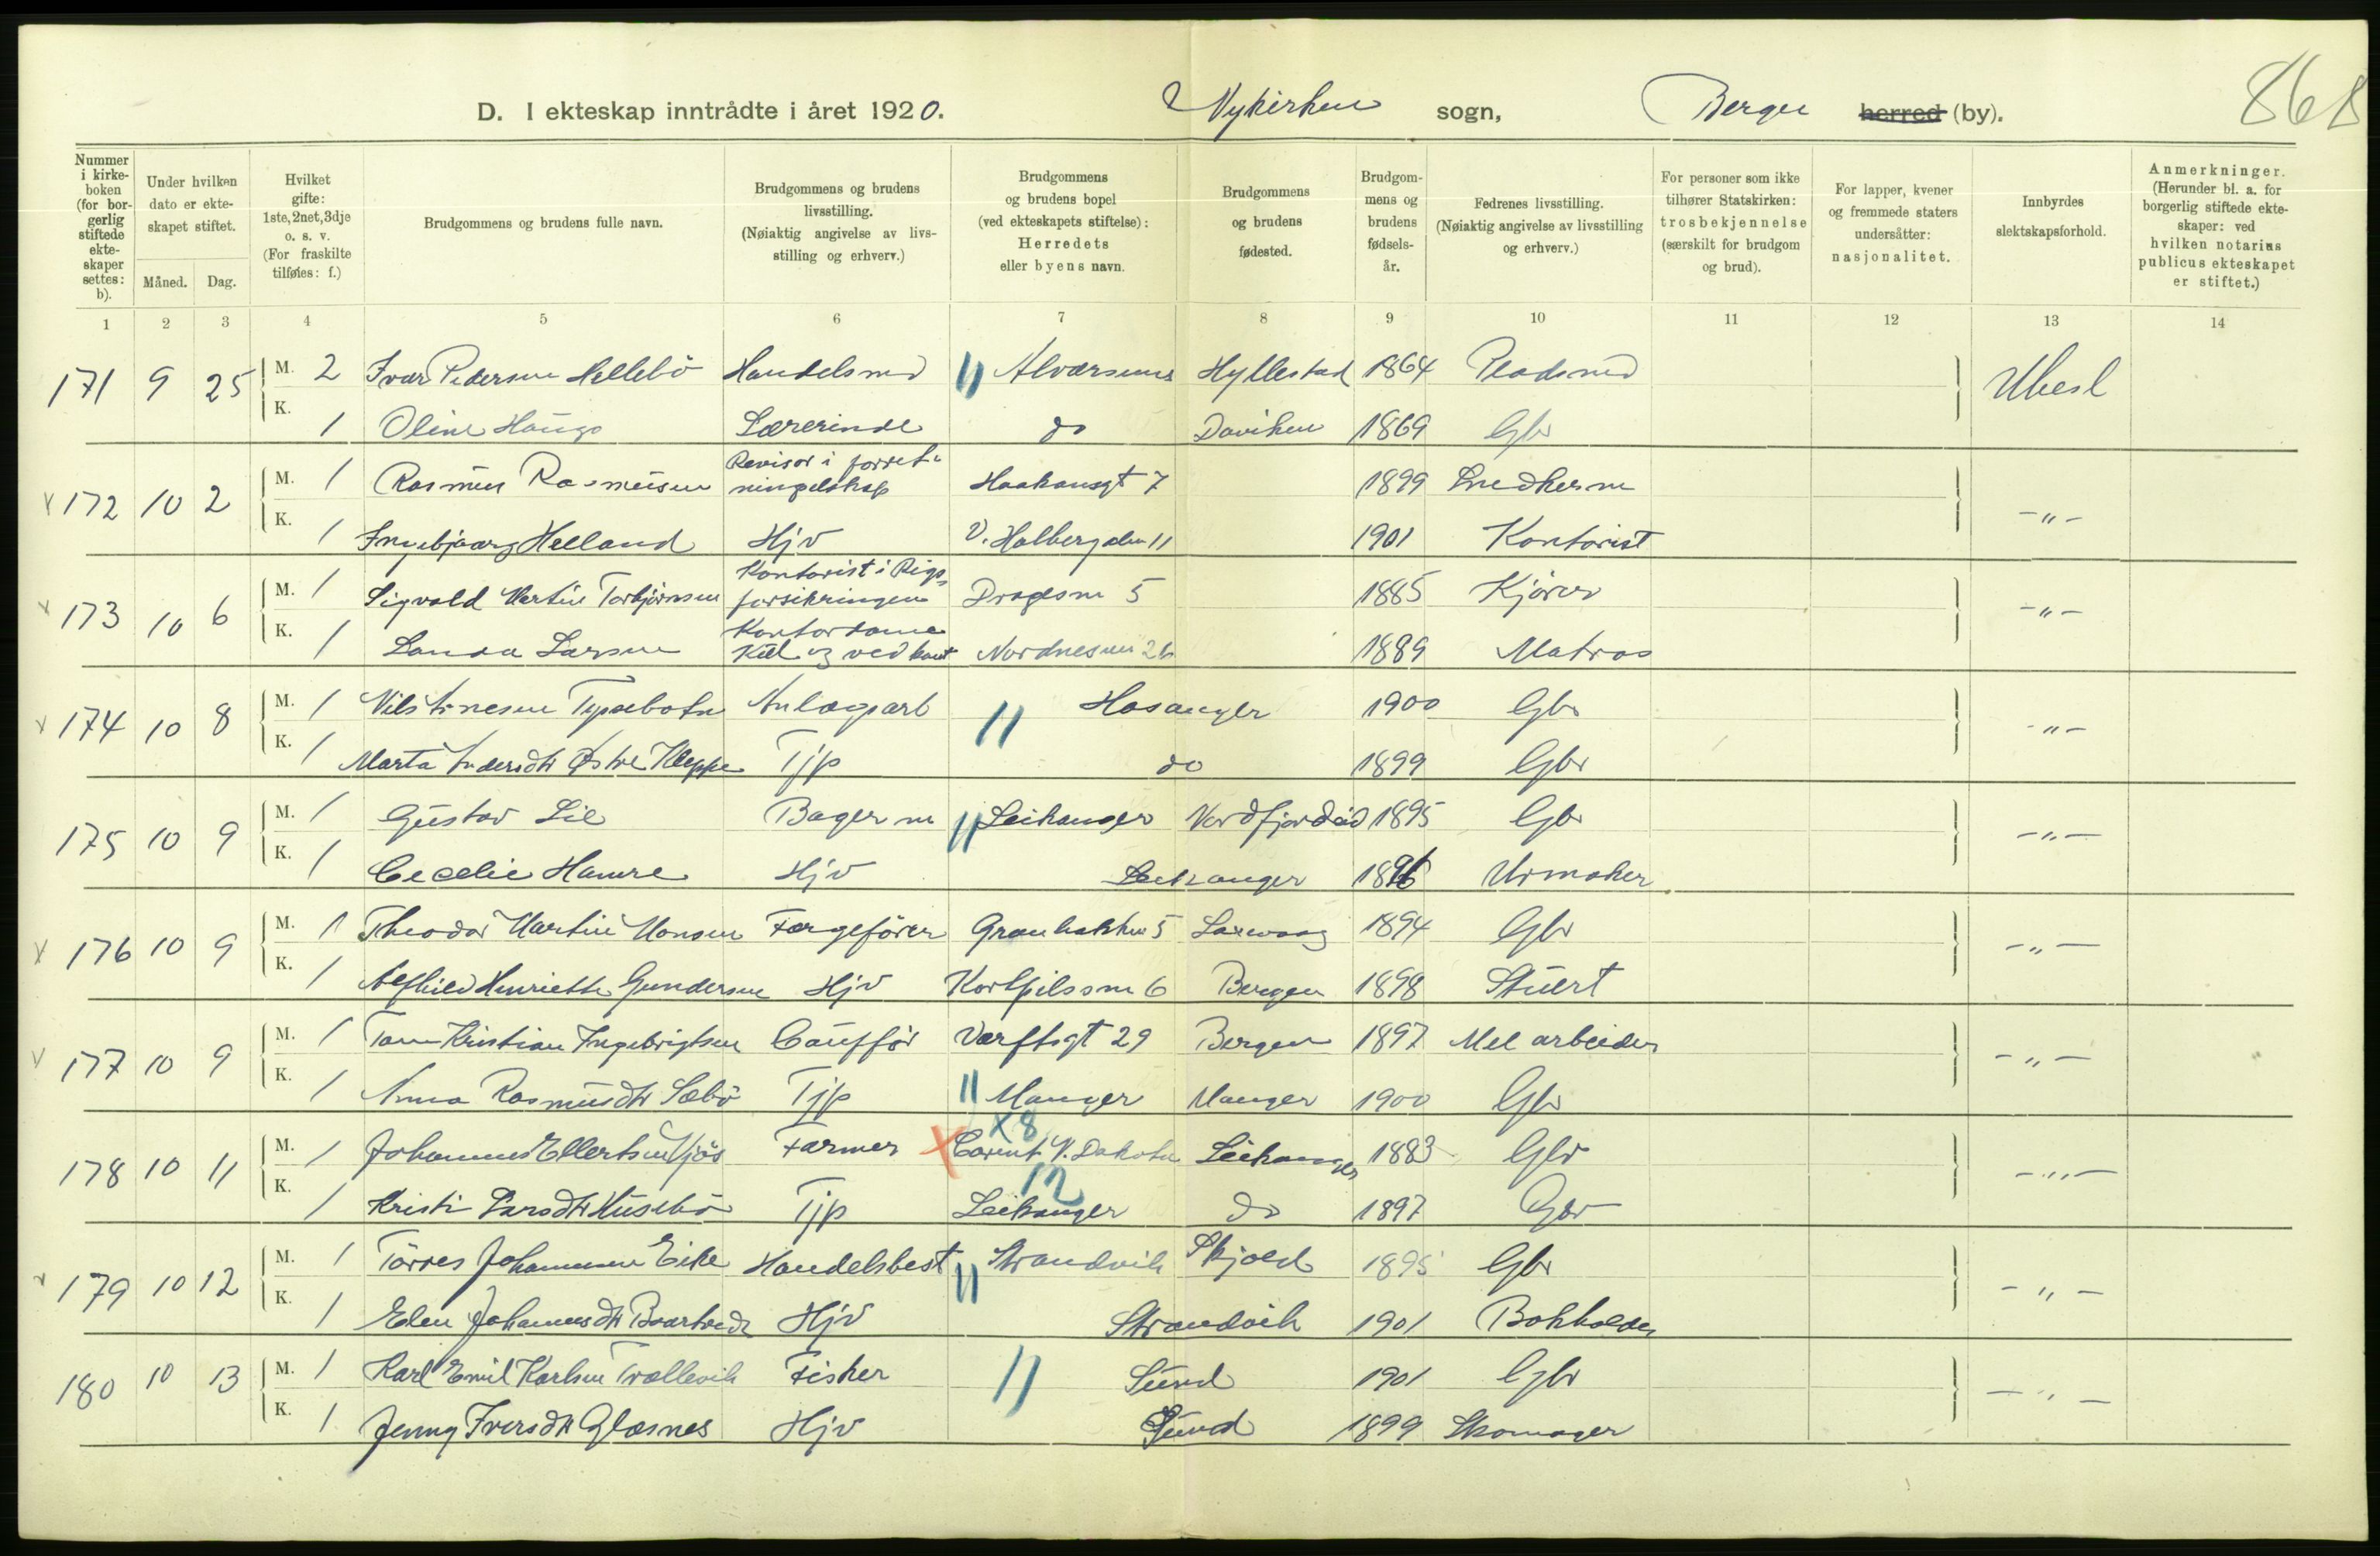 868
D. I ekteskap inntrådte i året 1920. Nykirken sogn, Bergen herred (by).
Nummer i kirkeboken (for borgerlig stiftede ekteskaper settes: b).
Under hvilken dato er ekteskapet stiftet.
Måned. Dag.
Hvilket gifte: 1ste, 2net, 3dje o. s. v. (For fraskilte tilføies: f.)
Brudgommens og brudens fulle navn.
Brudgommens og brudens livsstilling. (Nøiaktig angivelse av livsstilling og erhverv.)
Brudgommens og brudens bopel (ved ekteskapets stiftelse): Herredets eller byens navn.
Brudgommens og brudens fødested.
Brudgommens og brudens fødselsår.
Fedrenes livsstilling. (Nøiaktig angivelse av livsstilling og erhverv.)
For personer som ikke tilhører Statskirken: trosbekjennelse (særskilt for brudgom og brud).
For lapper, kvener og fremmede staters undersåtter: nasjonalitet.
Innbyrdes slektskapsforhold.
Anmerkninger. (Herunder bl. a. for borgerlig stiftede ekteskaper: ved hvilken notarius publicus ekteskapet er stiftet.)
1 2 3 4 5 6 7 8 9 10 11 12 13 14
171 9 25 M. 2 Ivar Pedersen Hellebö Handelsmd Alværsund Hyllestad 1864 Pladsmd Ubesl
K. 1 Oline Haugs Lærerinde do Daviken 1869 Gbr
172 10 2 M. 1 Rasmus Rasmussen Revisor i forretningselskap Haakonsgt 7 1899 Snedkerm -"-
K. 1 Ingebjørg Helland Hjv V. Holbergsalm 11 1901 Kontorist
173 10 6 M. 1 Sigvald Martin Torbjörnsen Kontorist i Rigsforsikringen Dragesm 5 1885 Kjörer -"-
K. 1 Larsen Kontordame Kul og ved Nordnesvn 26 1889 Matros
174 10 8 M. 1 Nils Arnesen Tyssebotn Anlægsarb Hosanger 1900 Gbr -"-
K. 1 Marta Andersdtr Østre Kleppe Tjp do 1899 Gbr
175 10 9 M. 1 Gustav Lie Bagerm Leikanger Nordfjordeid 1895 Gbr -"-
K. 1 Cecelie Hamre Hjv Leikanger 1896 Urmaker
176 10 9 M. 1 Theodor Martin Monsen Færgefører Granbakken 5 Laxevaag 1894 Gbr -"-
K. 1 Alfhild Henriette Gundersen Hjv Kortpilssm 6 Bergen 1898 Stuert
177 10 9 M. 1 Tom Kristian Ingebrigtsen Caufför Verftsgt 29 Bergen 1897 Mek arbeider -"-
K. 1 Anna Rasmusdtr Sæbö Tjp Manger Manger 1900 Gbr
x 8
178 10 11 M. 1 Johannes Ellertsen Njös Farmer N. Dakota Leikanger 1883 Gbr -"-
12
K. 1 Kristi Larsdtr Husebö Tjp Leikanger do 1897 Gbr
179 10 12 M. 1 Törres Johannessen Eike Handelsbest Strandvik Skjold 1895 Gbr -"-
K. 1 Elen Johannesdtr Hjv Strandvik 1901 Bokholder
180 10 13 M. 1 Karl Emil Karlsen Trællevik Fisker Sund 1901 Gbr -"-
K. 1 Jenny Iversdtr Glæsnes Hjv Sund 1899 Skomager